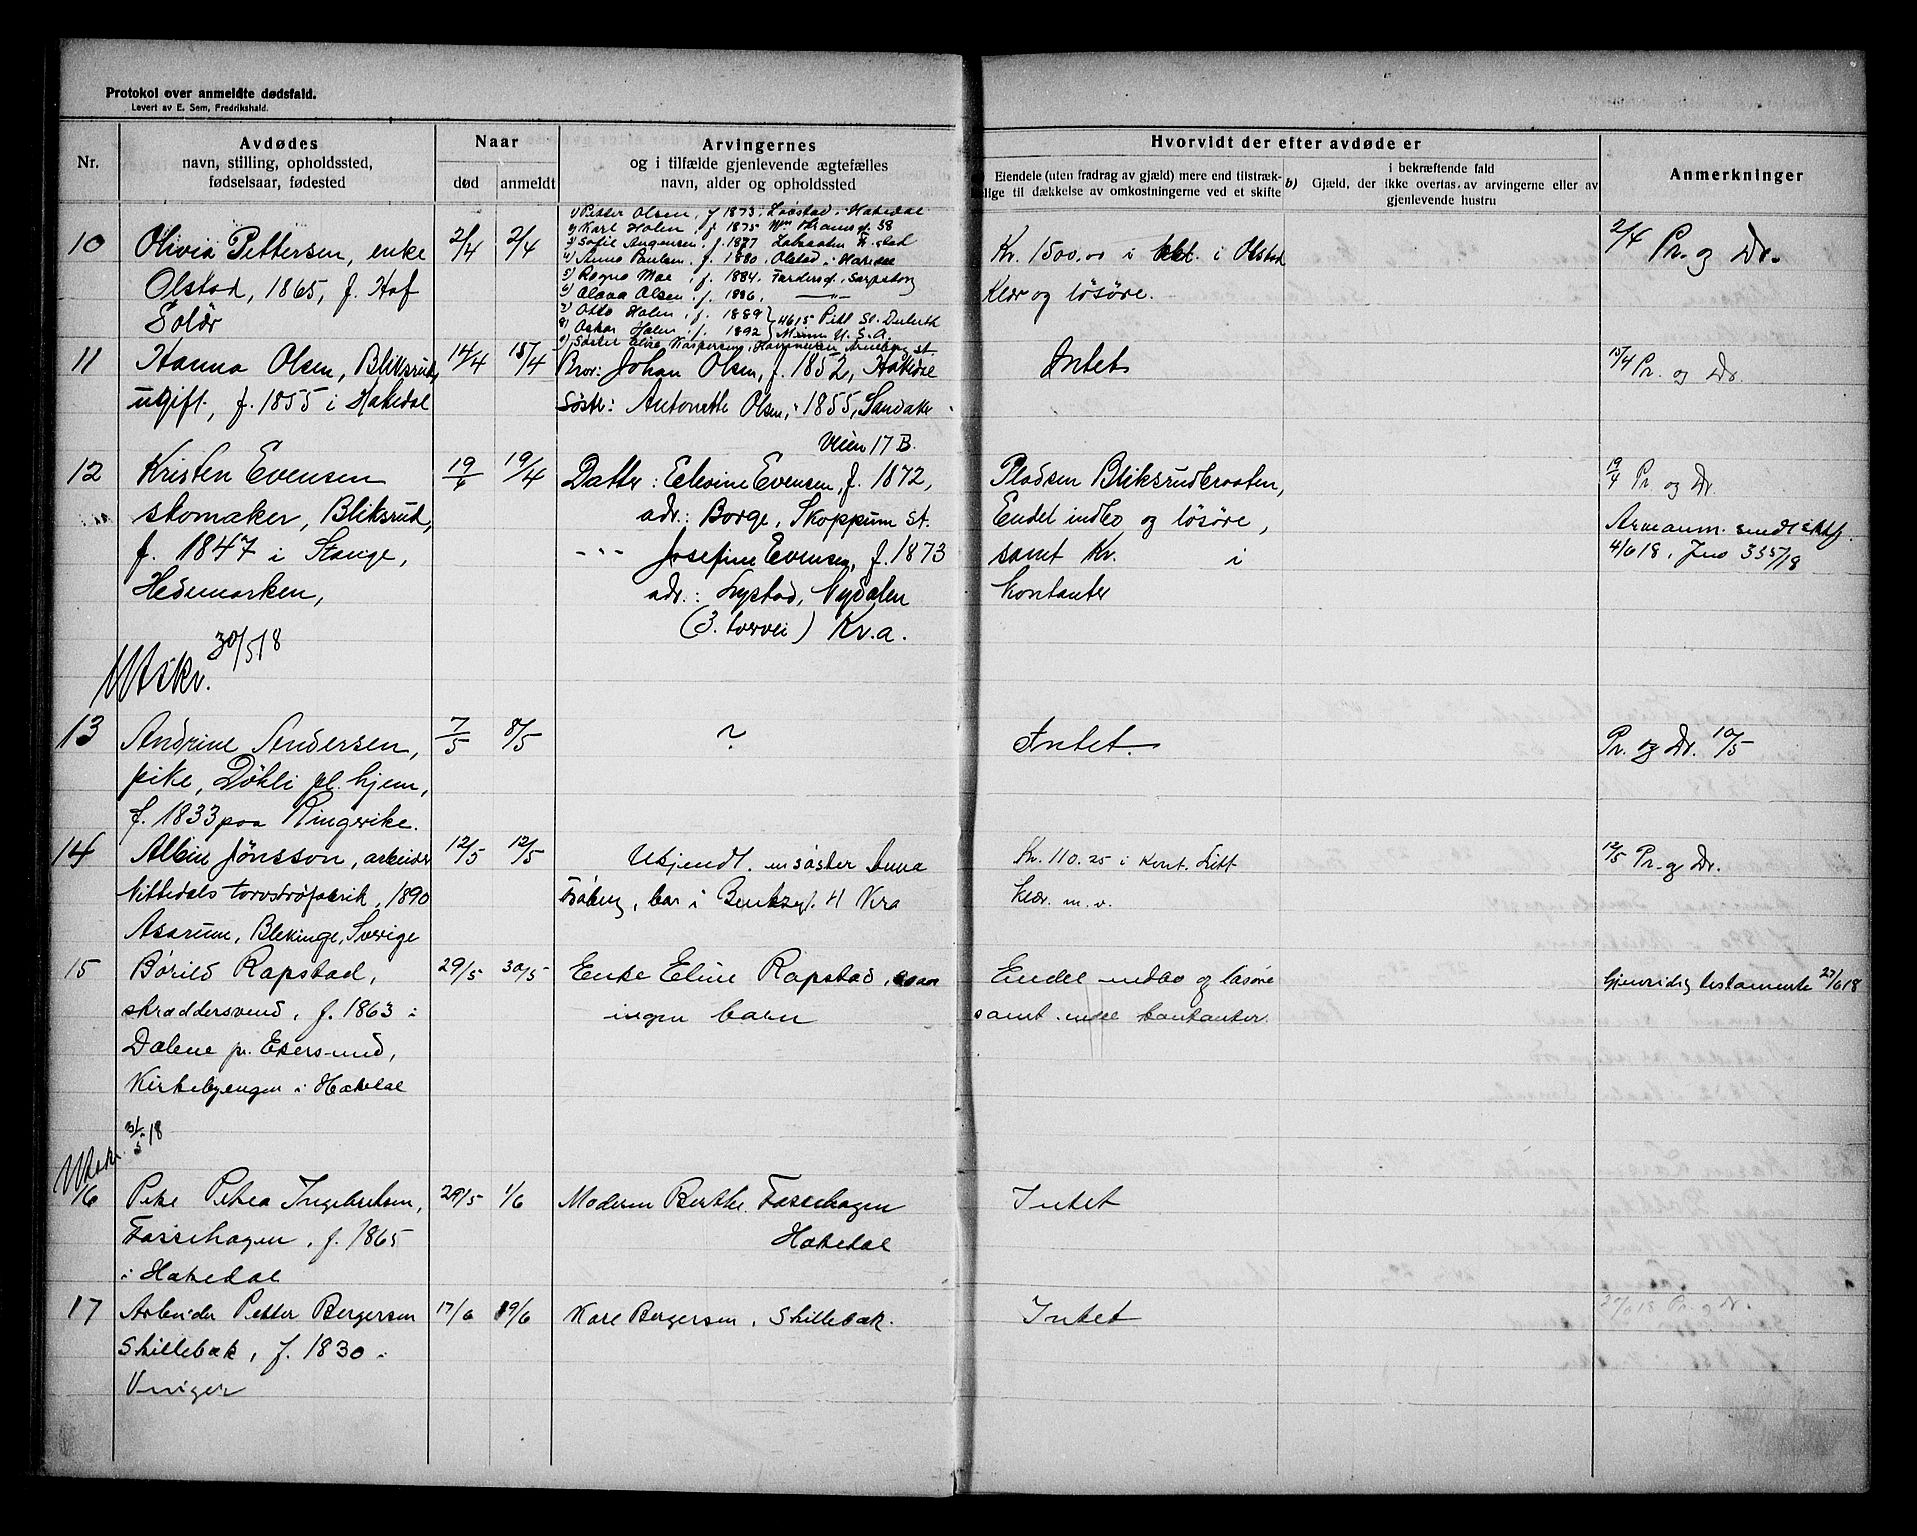 Protokol over anmeldte dødsfald.
Levert av E. Sem, Fredrikshald.
Nr.
Avdødes
navn, stilling, opholdssted,
fødselsaar, fødested
Naar
død
anmeldt
Arvingernes
og i tilfælde gjenlevende ægtefælles
navn, alder og opholdssted
Hvorvidt der efter avdøde er
Eiendele (uten fradrag av gjæld) mere end tilstræk-
lige til dækkelse av omkostningerne ved et skifte
b) Gjæld, der
i bekræftende fald
ikke overtas av arvingerne eller av
gjenlevende hustru
Anmerkninger
10
Olivia Pettersen, enke
Olstad, 1865, f. Hof
Solør
2/4
2/4
1) Petter Olsen, f 1873, Hakedal
2) Karl Holen, f. 1875 58
3) Sofie f. 1877
4) Anna Paulsen, f. 1880, Olstad i Hakedal
5) Ragna Moe, f. 1884, Sarpsborg
6) Olava Olsen, f. 1886, —"—
7) Otto Holen, f. 1889
8) Oskar Holen, f. 1892
4615 Duluth
Minn U. S. A.
9) Søster Kaspersen, st.
Kr. 1500,00 i i Olstad
Klær og løsøre.
2/4 Pr. og Dr.
11
Hanna Olsen, Bliksrud,
ugift, f. 1855 i Hakedal
14/4
15/4
Bror: Johan Olsen, f. 1852, Hakedal
Søster: Antonette Olsen, " 1855, Sandaker
Veien 17 B.
Intet
15/4 Pr. og Dr.
12
Kristen Evensen
skomaker, Bliksrud,
f. 1847 i Stange,
Hedemarken,
19/4
19/4
Datter: Evensen, f. 1872,
adr.: Borge, Skoppum st.
" " " Josefine Evensen, f. 1873
adr.: Nydalen
(3. ) Kr.a.
Pladsen
Endel indbo og løsøre,
samt Kr. i
kontanter
19/4 Pr. og Dr.
sendt
4/6 18, Jno 335/18
Utskr. 30/5 18
13
Andrine Andersen,
pike, Døhli pl. hjem,
f. 1833 paa Ringerike.
7/5
8/5
?
Intet.
Pr. og Dr. 10/5
14
Albin Jönsson, arbeider
Nittedals torvstrøfabrik, 1890
Asarum, Blekinge, Sverige
12/5
12/5
Ukjendt. en søster Anna
bor i 4 Kra
Kr. 110.25 i kont. Litt
klær m. v.
12/5 Pr. og Dr.
15
Børild Rapstad,
skræddersvend, f. 1863 i
Dalene pr. Ekersund,
Kirkebyengen i Hakedal
29/5
30/5
Enke Eline Rapstad,
ingen barn
Endel indbo og løsøre
samt endel kontanter.
Gjensidig testamente 27/6 18
Utskr. 31/5 18
16
Pike Petra Ingebretsen,
Fossehagen, f. 1865
i Hakedal
29/5
1/6
Moderen Berthe Fossehagen
Hakedal
Intet
17
Arbeider Petter Bergersen
Skillebæk, f. 1830 i
17/6
19/6
Kare Bergersen, Skillebæk.
Intet
27/6 18 Pr. og Dr.